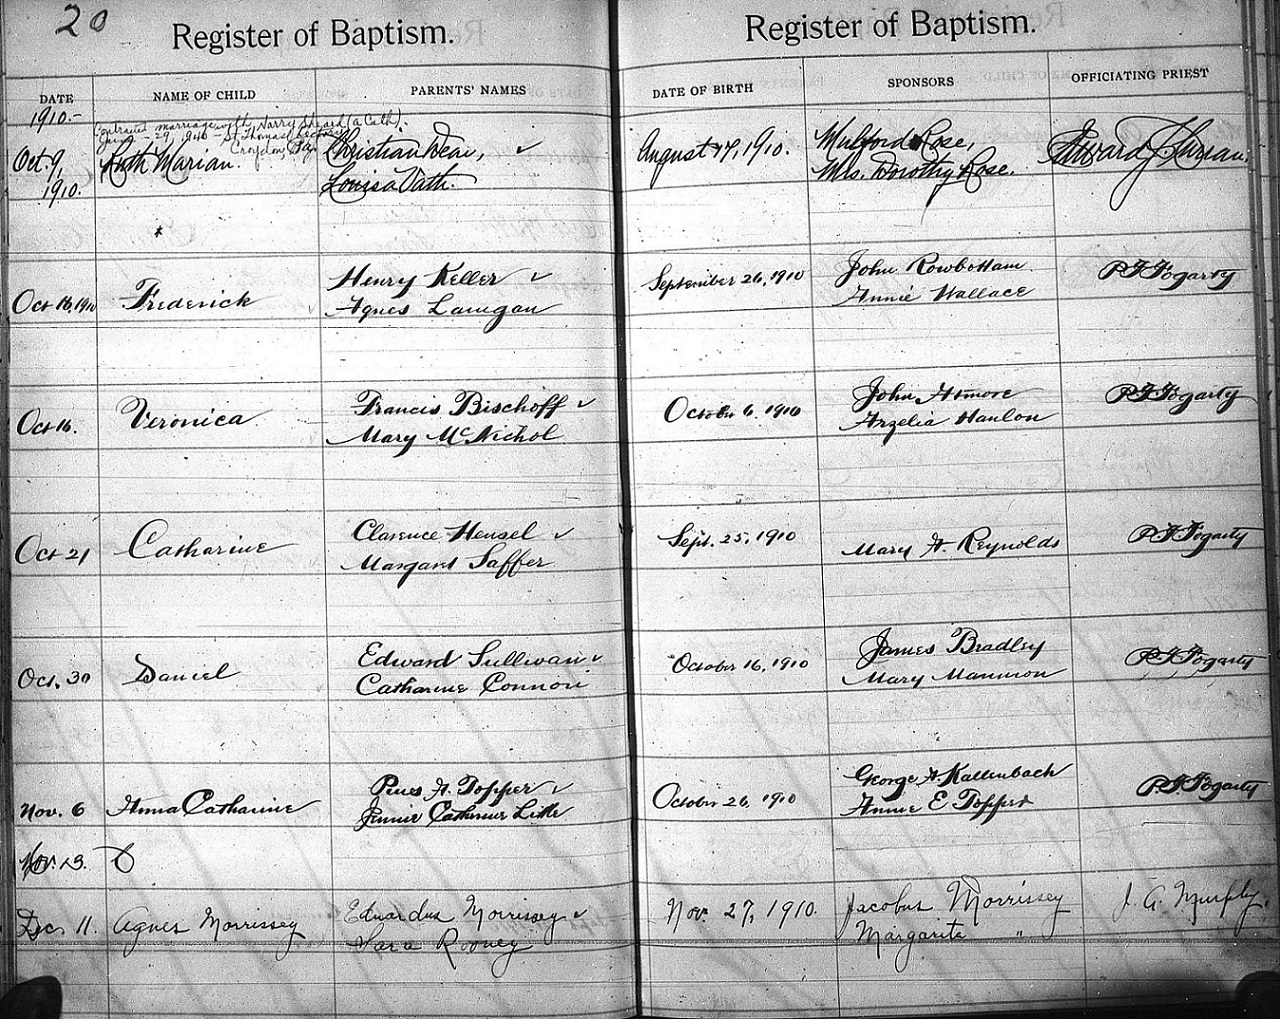 20
Register of Baptism. Register of Baptism.
DATE NAME OF CHILD PARENTS' NAMES DATE OF BIRTH SPONSORS OFFICIATING PRIEST
1910.-
Contracted marriage with Harry (a Cath).
29, 1940 - St. Thomas
Croydon, Pa.
Oct. 9, Ruth Marian. Christian August 17, 1910. Mulford Rose, Edward J.
1910. Louisa Vath. Mrs. Dorothy Rose.
Oct 16, 1910 Frederick Henry Keller September 26, 1910 John Rowbottam P. J. Fogarty
Agnes Lanigan Annie Wallace
Oct 16. Veronica Francis Bischoff October 6, 1910 John Atmore P. J. Fogarty
Mary McNichol Arzelia Hanlon
Oct 21 Catharine Clarence Hensel Sept. 25, 1910 Mary A. Reynolds P. J. Fogarty
Margaret Saffer
Oct. 30 Daniel Edward Sullivan October 16, 1910 James Bradley P. J. Fogarty
Catharine Connori Mary Mannion
Nov. 6 Anna Catharine Pius A. Topper October 26, 1910 George A. Kallenbach P. J. Fogarty
Jennie Catherine Little Annie E. Topper
Nov. 13.
Dec. 11. Agnes Morrissey Eduardus Morrissey Nov. 27, 1910. Jacobus Morrissey J. A. Murphy.
Sara Rooney Margarita "